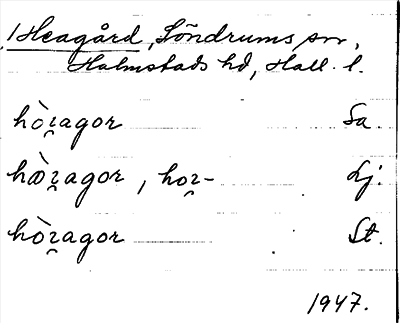 1 Heagård, Söndrums sn,
Halmstads hd, Hall. l.
hòʐagor Sa.
hæ̀ʐagor, hoʐ- Lj.
hòʐagor St.
1947.